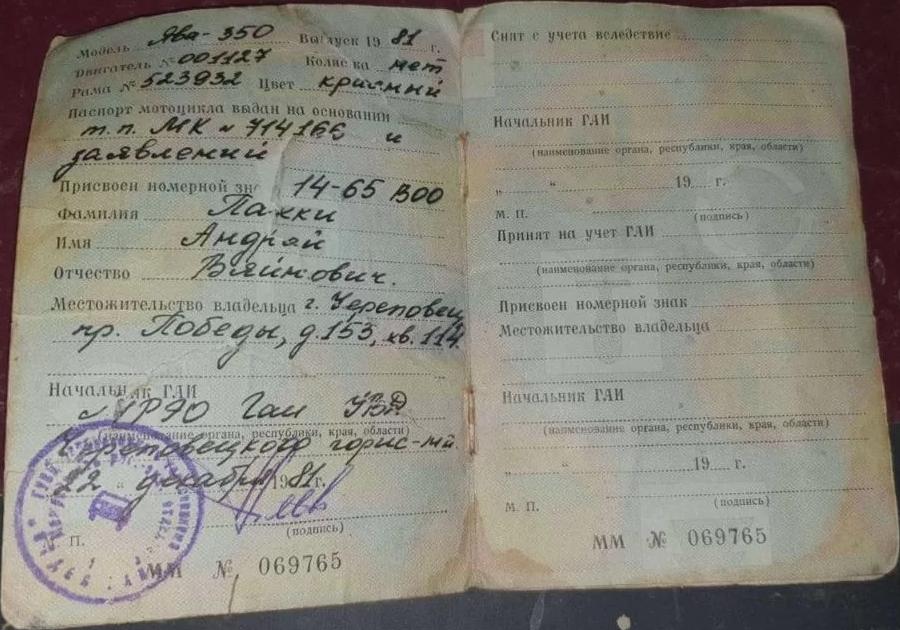 Модель Ява-350 Выпуск 1981 г.
Двигатель № 001127 Коляска нет
Рама № 523932 Цвет красный
Паспорт мотоцикла выдан на основании
т.п. МК № 714166 и
заявлений
Присвоен номерной знак 14-65 ВОО
Фамилия Пакки
Имя Андрей
Отчество Вяйнович.
Местожительство владельца г. Череповец
пр. Победы, д.153, кв. 114
Начальник ГАИ
МРЭО Гаи УВД
(наименование органа, республики, края, области)
Череповецкого горис-м
22 декабря 1981 г.
(подпись)
М. П.
ММ № 069765
Снят с учета вследствие
Начальник ГАИ
(наименование органа, республики, края, области)
„ “ 19 г.
М. П. (подпись)
Принят на учет ГАИ
(наименование органа, республики, края, области)
Присвоен номерной знак
Местожительство владельца
Начальник ГАИ
(наименование органа, республики, края, области)
„ “ 19 г.
М. П. (подпись)
ММ № 069765